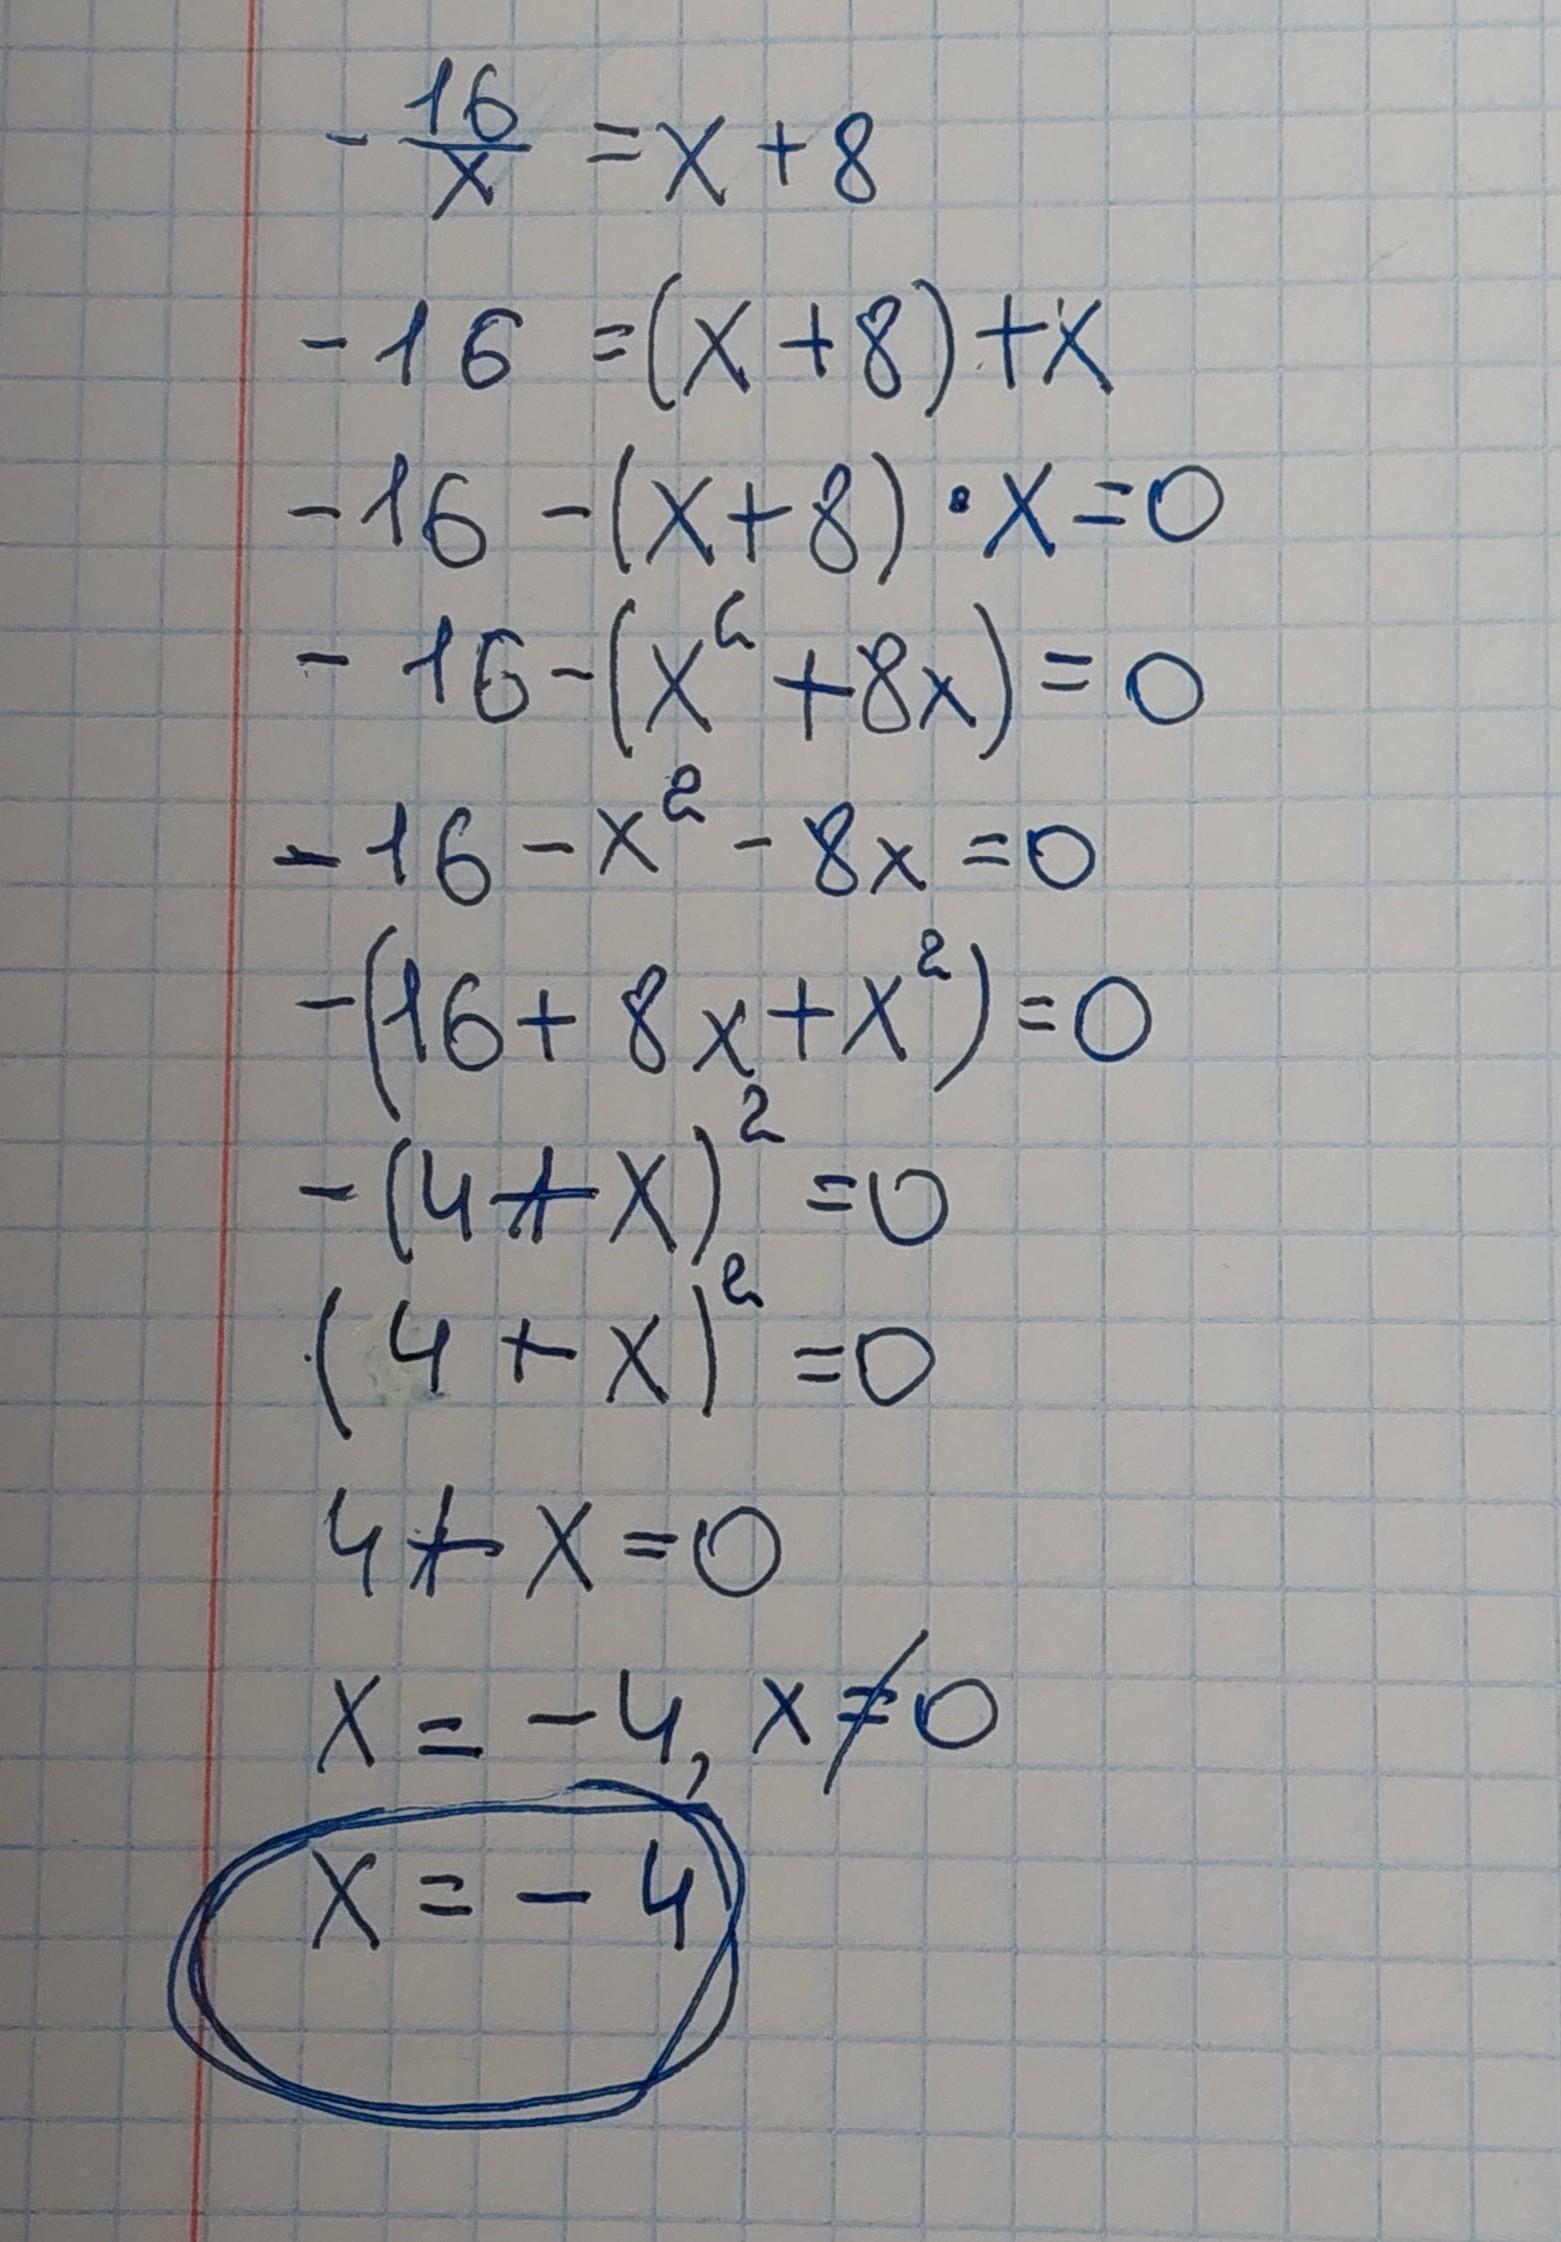 -16/x = x + 8
-16 = (x + 8) + x
-16 - (x + 8) • x = 0
-16 - (x² + 8x) = 0
-16 - x² - 8x = 0
-(16 + 8x + x²) = 0
-(4 + x)² = 0
(4 + x)² = 0
4 + x = 0
x = -4, x ≠ 0
x = -4